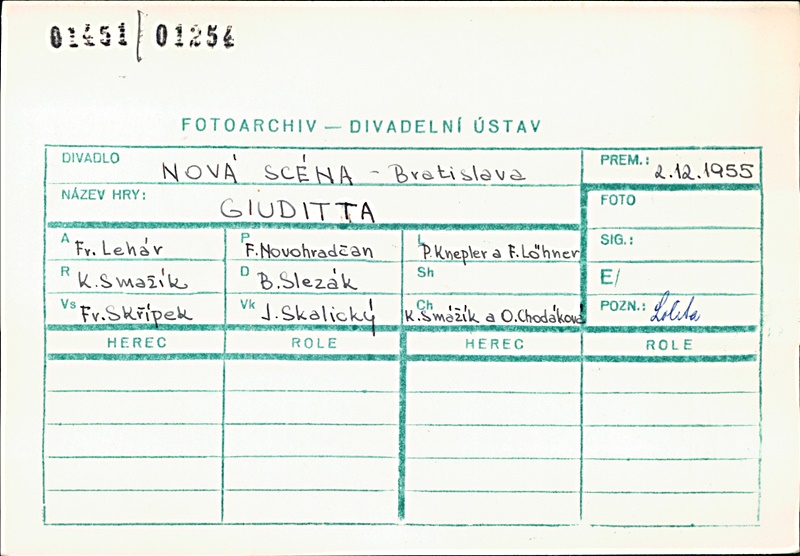 01451/01254
FOTOARCHIV — DIVADELNÍ ÚSTAV
DIVADLO NOVÁ SCÉNA - Bratislava PREM.: 2.12.1955
NÁZEV HRY: GIUDITTA FOTO
A Fr. Lehár P F. Novohradčan L P. Knepler a F. Löhner SIG.:
R K. Smažík D B. Slezák Sh E/
Vs Fr. Skřípek Vk J. Skalický Ch K. Smážík a O. Chodáková POZN.: Lolita
HEREC ROLE HEREC ROLE